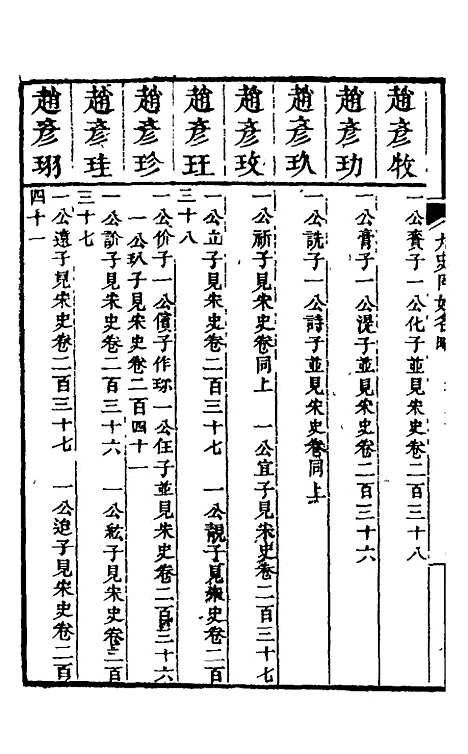 九史同姓名略
趙彥牧
一公賚子一公化子並見宋史卷二百三十八
趙彥玏
一公膏子一公湜子並見宋史卷二百三十六
趙彥玖
一公詵子一公詩子並見宋史卷同上
趙彥玫
一公祈子見宋史卷同上　一公宜子見宋史卷二百三十七
趙彥玨
一公立子見宋史卷二百三十七　一公靚子見宋史卷二百
三十八
趙彥珍
一公价子一公儐子作珎一公任子並見宋史卷二百三十六
一公㺨子見宋史卷二百四十一
趙彥珪
一公詥子見宋史卷二百三十六　一公紘子見宋史卷二百
三十七
趙彥珝
一公遠子見宋史卷二百三十七　一公迨子見宋史卷二百
四十一